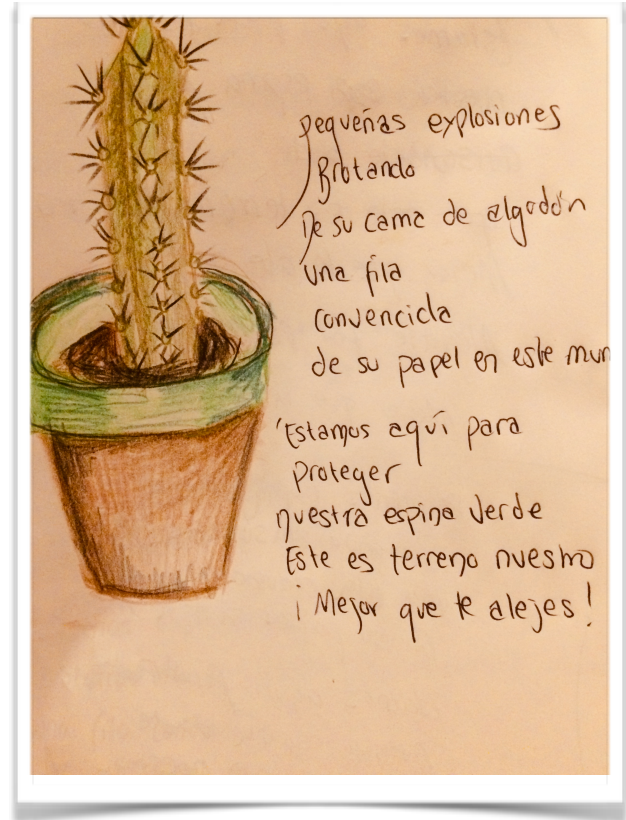 pequeñas explosiones
Brotando
De su cama de algodón
una fila
convencida
de su papel en este mun
'Estamos aquí para
proteger
nuestra espina verde
Este es terreno nuestro
¡Mejor que te alejes!